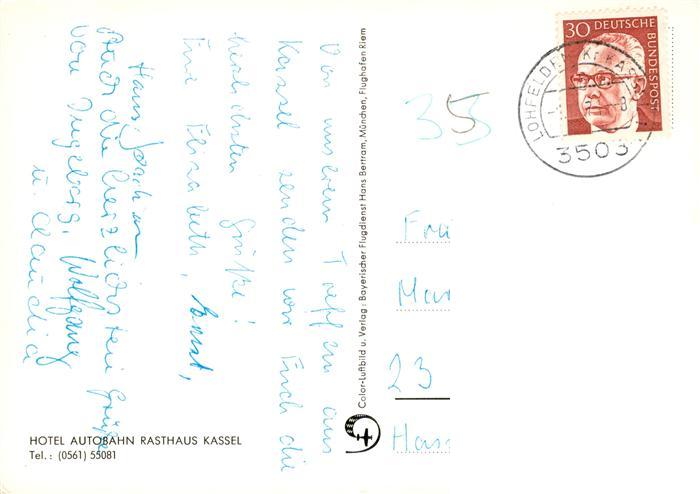 Von unserem Treffen aus
Kassel senden wir Euch die
herzlichsten Grüße!
Eure Elisabeth, Ernst,
Hans-Joachim
Auch die herzlichsten Grüße
von Ingeborg, Wolfgang
u. Claudia
HOTEL AUTOBAHN RASTHAUS KASSEL
Tel.: (0561) 55081
Color-Luftbild u. Verlag: Bayerischer Flugdienst Hans Bertram, München, Flughafen Riem
35
23
30 DEUTSCHE
BUNDESPOST
LOHFELDEN
3503